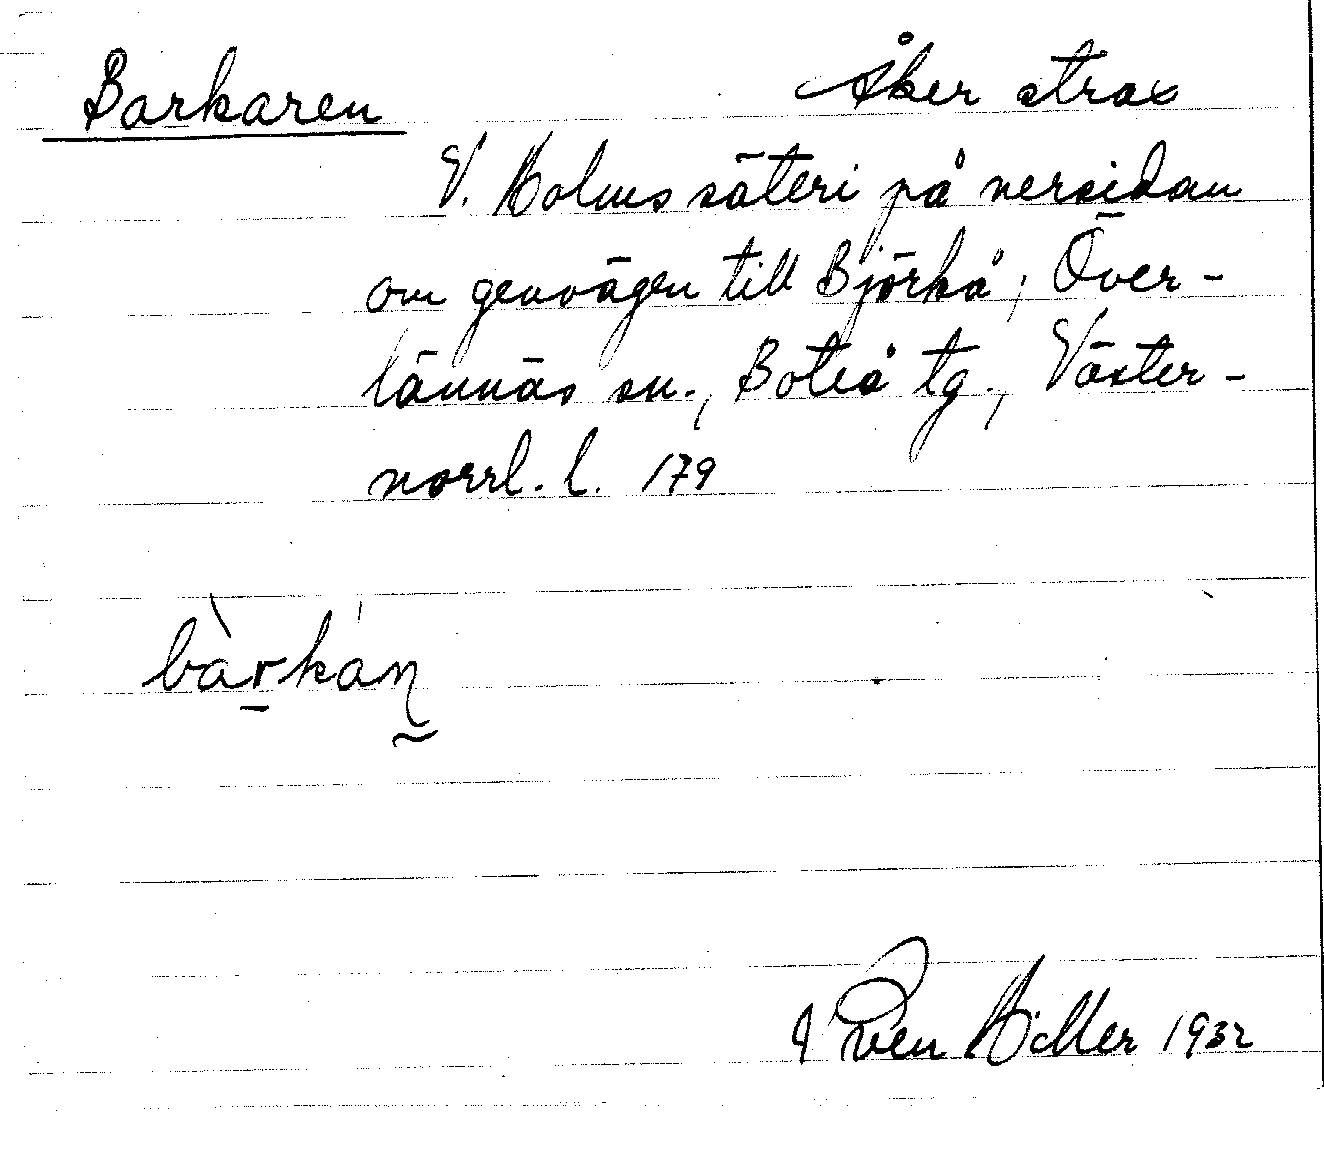 Barkaren
Åker strax
V. Holms säteri på nersidan
om genvägen till Björkå; Över-
lännäs sn., Boteå tg., Väster-
norrl. l. 179
bàrkán
Sven Höller 1932